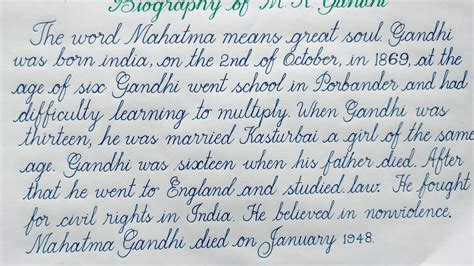 Biography of M K Gandhi
The word Mahatma means great soul. Gandhi
was born india, on the 2nd of October, in 1869, at the
age of six Gandhi went school in Porbander and had
difficulty learning to multiply. When Gandhi was
thirteen, he was married Kasturbai a girl of the same
age. Gandhi was sixteen when his father died. After
that he went to England and studied law. He fought
for civil rights in India. He believed in nonviolence.
Mahatma Gandhi died on January 1948.